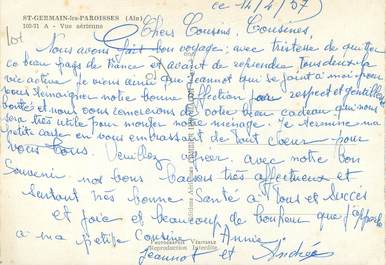 ce 14/4/67
ST-GERMAIN-les-PAROISSES (Ain)
102-71 A - Vue aérienne
Chers Cousins, Cousines,
Nous avons fait bon voyage; avec tristesse de quitter
ce beau pays de France et avant de reprendre tous deux la
vie active je viens ainsi que Jeannot qui se joint à moi pour
vous témoigner notre bonne affection pour respect et gentillesse
bonté et nous vous remercions de votre beau cadeau qui nous
sera très utile pour monter notre ménage. je termine ma
petite carte en vous embrassant de tout cœur pour
vous tous. Veuillez avec notre bon
Souvenir nos bons baisers très affectueux et
surtout très bonne Santé à Tous et Succès
et joie et beaucoup de bonheur que j'apporte
à ma petite Cousine Annie.
PHOTOGRAPHIE VÉRITABLE
Reproduction Interdite
Jeannot et Andrée